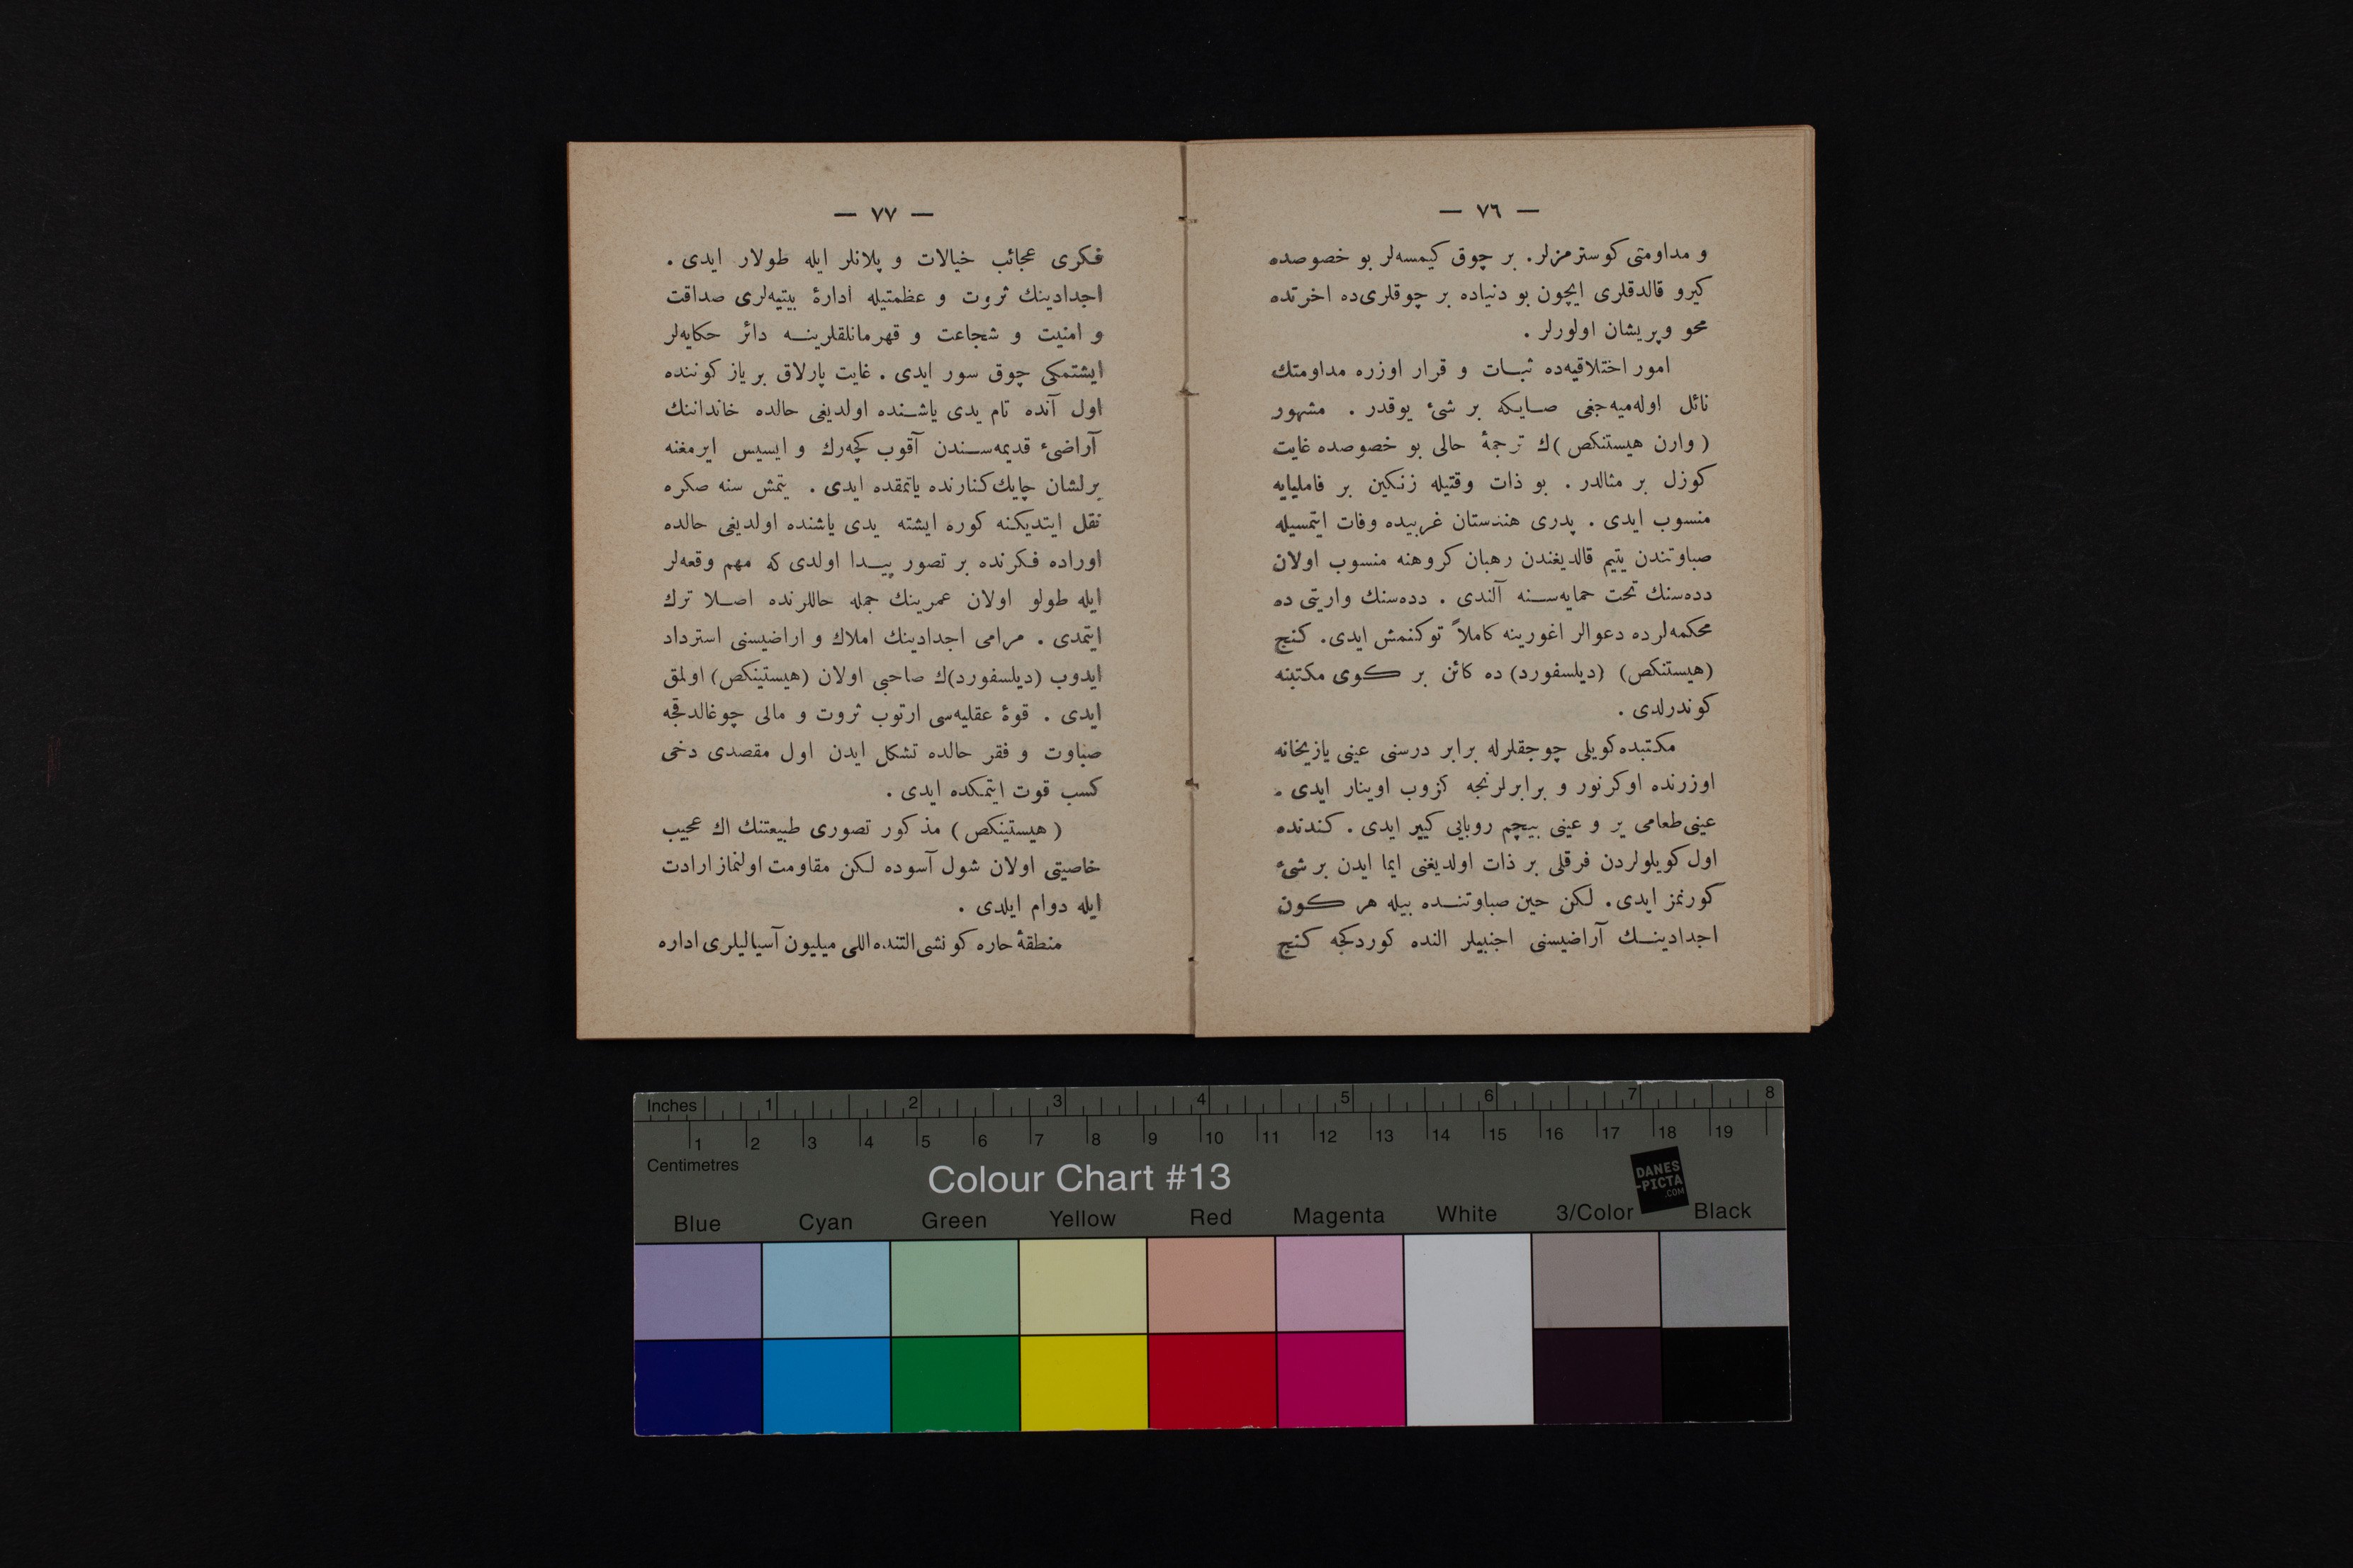 — ٧٦ —
و مداومتی کوسترمزلر. بر چوق کیمسه‌لر بو خصوصده
کیرو قالدقلری ایچون بو دنیاده بر چوقلری‌ده اخرتده
محو و پریشان اولورلر .
امور اختلاقیه‌ده ثبات و قرار اوزره مداومتك
نائل اوله‌میه‌جغی صایکه بر شئ یوقدر . مشهور
( وارن هیستنکص )ك ترجمهٔ حالی بو خصوصده غایت
کوزل بر مثالدر . بو ذات وقتیله زنکین بر فاملیایه
منسوب ایدی . پدری هندستان غربیده وفات ایتمسیله
صباوتندن یتیم قالدیغندن رهبان کروهنه منسوب اولان
دده‌سنك تحت حمایه‌سنه آلندی . دده‌سنك واریتی ده
محکمه‌لرده دعوالر اغورینه کاملاً توکنمش ایدی. کنج
(هیستنکص) (دیلسفورد) ده کائن بر کوی مکتبنه
کوندرلدی .
مکتبده کویلی چوجقلرله برابر درسنی عینی یازیخانه
اوزرنده اوکرنور و برابرلرنجه کزوب اوینار ایدی .
عینی طعامی یر و عینی بیچم روبایی کییر ایدی . کندنده
اول کویلولردن فرقلی بر ذات اولدیغنی ایما ایدن بر شئ
کورنمز ایدی. لکن حین صباوتنده بیله هر کون
اجدادینك آراضیسنی اجنبیلر النده کوردکجه کنج
— ٧٧ —
فکری عجائب خیالات و پلانلر ایله طولار ایدی .
اجدادینك ثروت و عظمتیله ادارهٔ بیتیه‌لری صداقت
و امنیت و شجاعت و قهرمانلقلرینه دائر حکایه‌لر
ایشتمکی چوق سور ایدی . غایت پارلاق بر یاز کوننده
اول آنده تام یدی یاشنده اولدیغی حالده خاندانتك
آراضیٔ قدیمه‌سندن آقوب کچه‌رك و ایسیس ایرمغنه
برلشان چایك کنارنده یاتمقده ایدی . یتمش سنه صکره
نقل ایتدیکنه کوره ایشته یدی یاشنده اولدیغی حالده
اوراده فکرنده بر تصور پیدا اولدی که مهم وقعه‌لر
ایله طولو اولان عمرینك جمله حاللرنده اصلا ترك
ایتمدی . مرامی اجدادینك املاك و اراضیسنی استرداد
ایدوب (دیلسفورد)ك صاحبی اولان (هیستینکص) اولمق
ایدی . قوهٔ عقلیه‌سی ارتوب ثروت و مالی چوغالدقجه
صباوت و فقر حالده تشکل ایدن اول مقصدی دخی
کسب قوت ایتمکده ایدی .
( هیستینکص ) مذکور تصوری طبیعتنك اك عجیب
خاصیتی اولان شول آسوده لکن مقاومت اولنماز ارادت
ایله دوام ایلدی .
منطقهٔ حاره کونشی التنده اللی میلیون آسیالیلری اداره
Inches 1 2 3 4 5 6 7 8
1 2 3 4 5 6 7 8 9 10 11 12 13 14 15 16 17 18 19
Centimetres
Colour Chart #13
DANES
-PICTA
.COM
Blue Cyan Green Yellow Red Magenta White 3/Color Black